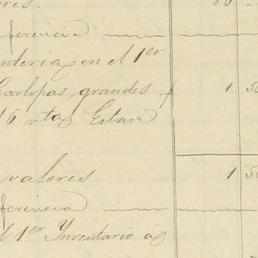 ores. 80
ferencia
nteria en el 1er
Garlopas grandes f 1 50
16 vtas Estan
valores 1 50
ferencia
l 1er Ynventario á